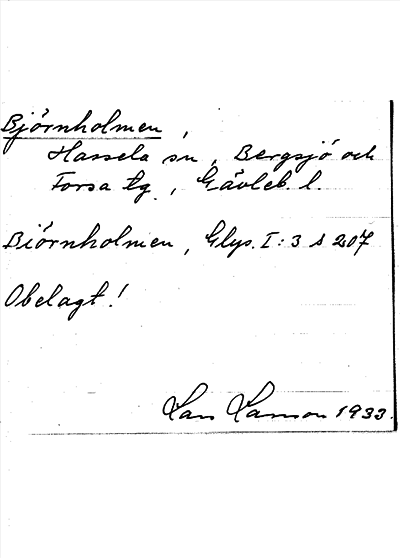 Björnholmen,
Hassela sn, Bergsjö och
Forsa tg, Gävleb. l.
Biörnholmen, Glys. I:3 s 207
Obelagt!
Lars Hanson 1933.